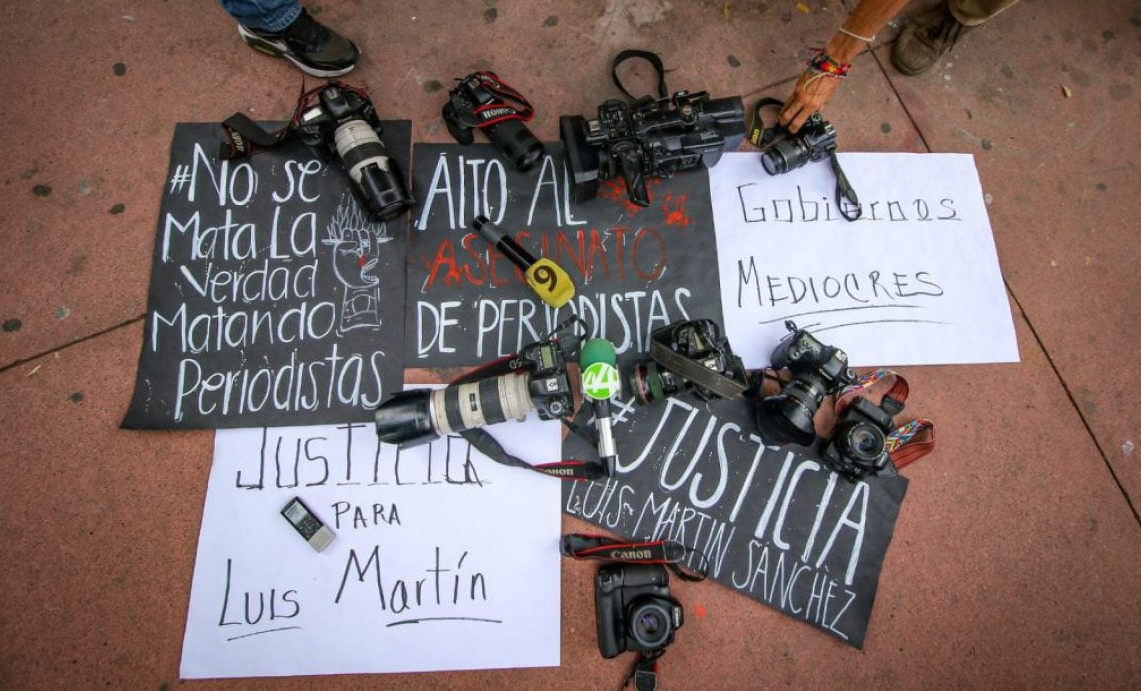 #No se
Mata La
Verdad
Matando
Periodistas
ALTO AL
ASESINATO
DE PERIODISTAS
9
Gobiernos
MEDIOCRES
JUSTICIA
PARA
Luis Martín
#JUSTICIA
LUIS MARTIN SÁNCHEZ
Canon
Canon
Canon